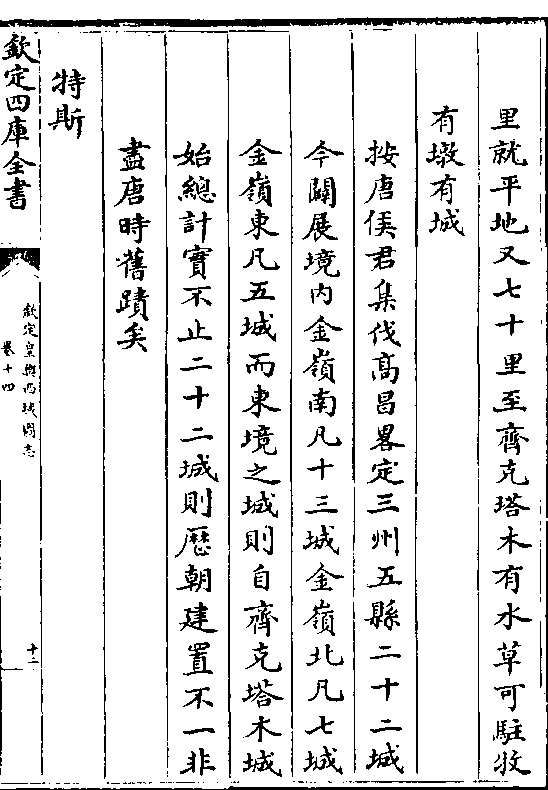 里就平地又七十里至齊克塔木有水草可駐牧
有墩有城
按唐侯君集伐髙昌畧定三州五縣二十二城
今闢展境内金嶺南凡十三城金嶺北凡七城
金嶺東凡五城而東境之城則自齊克塔木城
始總計實不止二十二城則歴朝建置不一非
盡唐時舊蹟矣
特斯
欽定四庫全書
欽定皇輿西域圖志
卷十四
十二